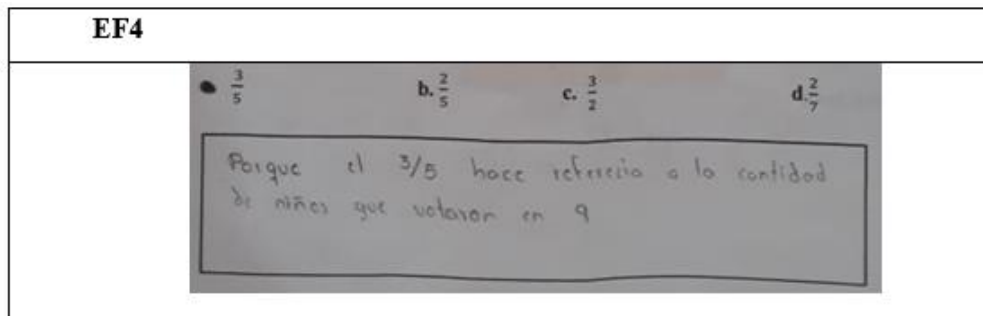 EF4
● 3/5 b. 2/5 c. 3/2 d. 2/7
Porque el 3/5 hace referecia a la cantidad
de niños que votaron en 9